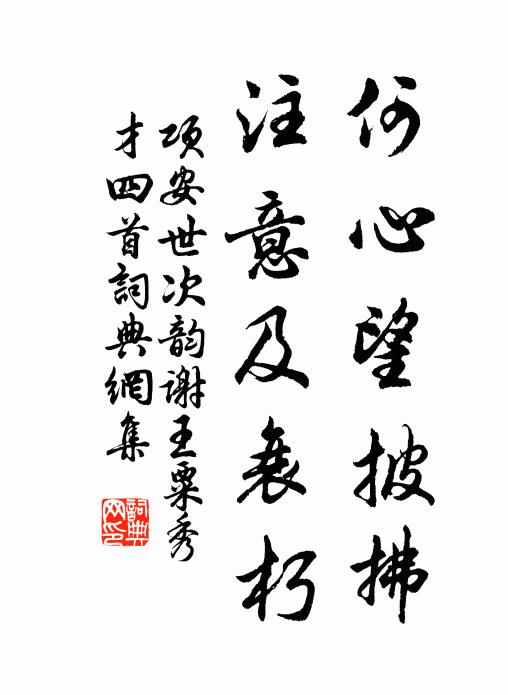 何心望披拂
注意及衰朽
项安世次韵谢王粟秀
才四首詞典網集
詞典网印